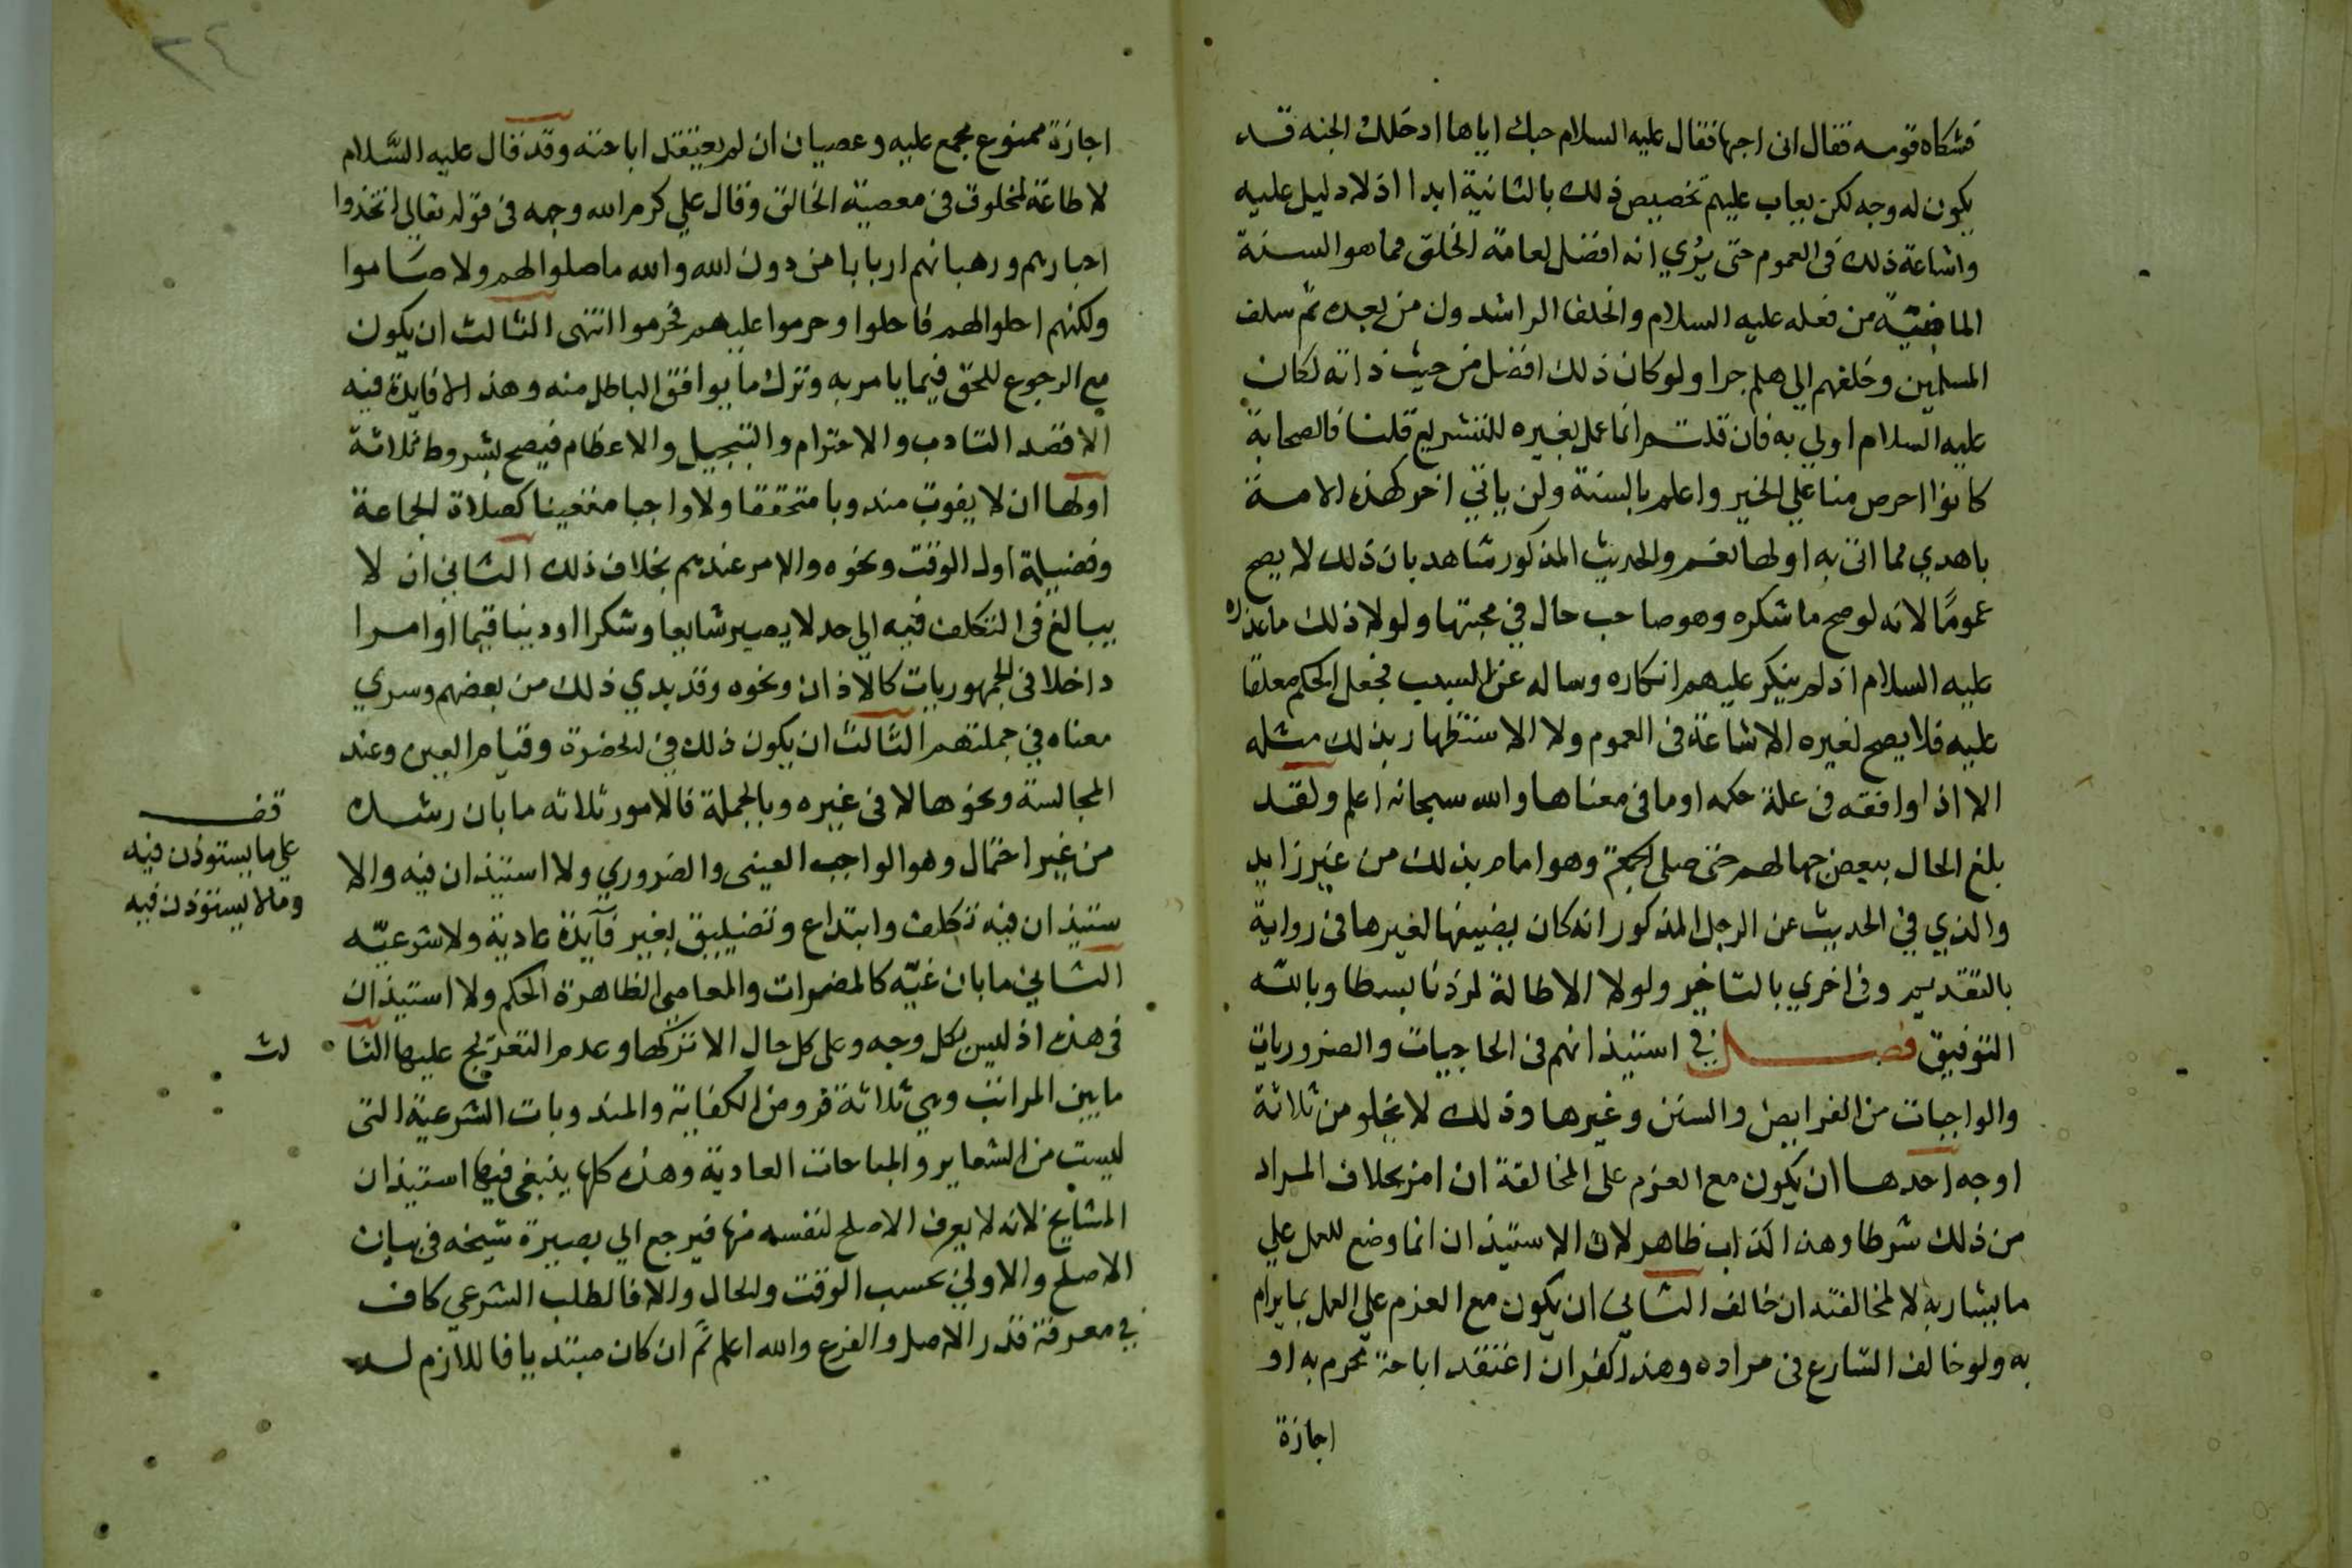 فشكاه قومه فقال اني احبها فقال عليه السلام حبك اياها ادخلك الجنه قد
يكون له وجه لكن يعاب عليهم تخصيص ذلك بالثانية ابدا اذ لا دليل عليه
واشاعة ذلك في العموم حتى يُري انه افضل لعامة الخلق مما هو السنة
الماضية من فعله عليه السلام والخلفا الراشدون من بعده ثم سلف
المسلمين وخلفهم الي هلم جرا ولو كان ذلك افضل من حيث ذاته لكان
عليه السلام اولي به فان قلت انما عمل بغيره للتشريع قلنا فالصحابة
كانوا احرص منا علي الخير واعلم بالسنة ولن ياتي اخر هذه الامة
باهدي مما اتى به اولها نعم والحديث المذكور شاهد بان ذلك لا يصح
عمومًا لانه لو صح ما شكره وهو صاحب حال في محبتها ولولا ذلك ما عذره
عليه السلام اذ لم ينكر عليهم انكاره وساله عن السبب فجعل الحكم معلقا
عليه فلا يصح لغيره الاشاعة في العموم ولا الاستظهار بذلك مثله
الا اذا وافقه في علة حكمه او ما في معناها والله سبحانه اعلم ولقد
بلغ الحال ببعض جهالهم حتى صلى الجمعة وهو امام بذلك من غير زايد
والذي في الحديث عن الرجل المذكور انه كان يضيفها لغيرها في رواية
بالتقديم وفي اخري بالتاخير ولولا الاطالة لزدنا بسطا وبالله
التوفيق فصل في استيذانهم في الحاجيات والضروريات
والواجبات من الفرايض والسنن وغيرها وذلك لا يخلو من ثلاثة
اوجه احدها ان يكون مع العزم على المخالفة ان امر بخلاف المراد
من ذلك شرطا وهذا كذاب ظاهر لان الاستيذان انما وضع للعمل علي
ما يشار به لا لمخالفته ان خالف الثاني ان يكون مع العزم علي العمل بما يرام
به ولو خالف الشارع في مراده وهذا كفر ان اعتقد اباحة محرم به او
اجازة
٢٤
اجازة ممنوع مجمع عليه وعصيان ان لم يعتقد اباحته وقد قال عليه السَّلام
لا طاعة لمخلوق في معصية الخالق وقال علي كرم الله وجهه في قوله تعالي اتخذوا
احبارهم ورهبانهم اربابا من دون الله والله ما صلوا لهم ولا صَاموا
ولكنهم احلوا لهم فاحلوا وحرموا عليهم فحرموا انتهى الثالث ان يكون
مع الرجوع للحق فيما يامر به وترك ما يوافق الباطل منه وهذا لا فايدة فيه
الا قصد التادب والاحترام والتبجيل والاعظام فيصح بشروط ثلاثة
اولها ان لا يفوت مندوبا متحققا ولا واجبا متعينا كصلاة الجماعة
وفضيلة اول الوقت ونحوه والامر عندهم بخلاف ذلك الثاني ان لا
يبالغ في التكلف فيه الي حد لا يصير شايعا وشكرا او دينا قيما او امرا
داخلا في الجمهوريات كالاذان ونحوه وقد يدي ذلك من بعضهم وسري
معناه في جملتهم الثالث ان يكون ذلك في الحضرة وقيام العين وعند
المجالسة ونحوها لا في غيره وبالجملة فالامور ثلاثه ما بان رشده
من غير احتمال وهو الواجب العيني والضروري ولا استيذان فيه والا
ستيذان فيه تكلف وابتداع وتضييق بغير فآيدة عادية ولا شرعيّه
الثاني ما بان غيّه كالمضرات والمعاصي الظاهرة الحكم ولا استيذان
في هذه اذ ليس بكل وجه وعلى كل حال الا تركها وعدم التعريج عليها الثا
لث
ما بين المراتب وهي ثلاثة فروض الكفاية والمندوبات الشرعية التى
ليست من الشعاير والمباحات العادية وهذه كلها ينبغي فيها استيذان
المشايخ لانه لا يعرف الاصلح لنفسه منها فيرجع الي بصيرة شيخه في بيان
الاصلح والاولي بحسب الوقت والحال والا فالطلب الشرعي كاف
في معرفة قدر الاصل والفرع والله اعلم ثم ان كان مبتديا فاللازم له
قف
علي ما يستوذن فيه
وما لا يستوذن فيه